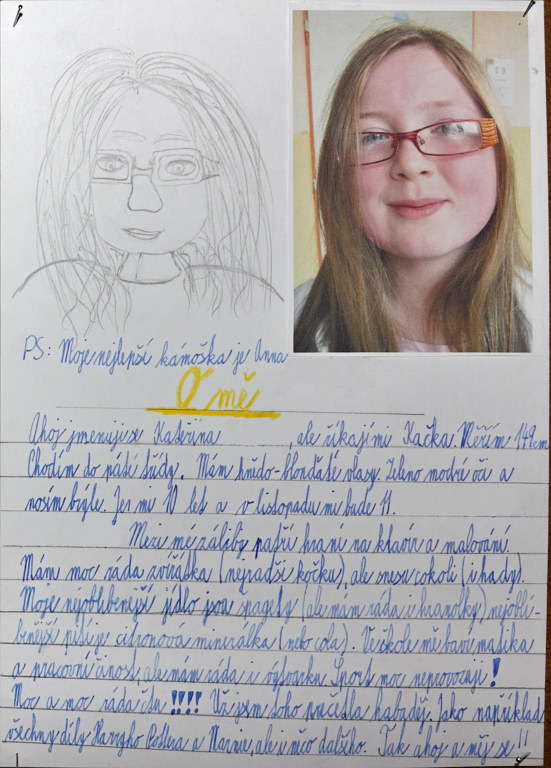 PS: Moje nejlepší kámoška je Anna
O mě
Ahoj, jmenuji se Kateřina , ale říkají mi Kačka. Měřím 149cm
Chodím do páté třídy. Mám hnědo-blonďaté vlasy. Zeleno modré oči a
nosím brýle. Jes mi 10 let a v listopadu mi bude 11.
Mezi mé záliby patří hraní na klavír a malování.
Mám moc ráda zvířátka (nejradši kočku), ale snesu cokoli (i hady).
Moje nejoblíbenější jídlo jsou špagety (ale mám ráda i hranolky), nejoblí-
benější pití je citronova minerálka (nebo cola). Ve škole mě baví matika
a pracovní činost, ale mám ráda i výtvarku. Sport moc neprovozuji!
Moc a moc ráda čtu !!!! Už jsem toho přečetla habaděj. Jako například
všechny díly Harryho Pottera a Narnie, ale i něco dalšího. Tak ahoj a měj se !!